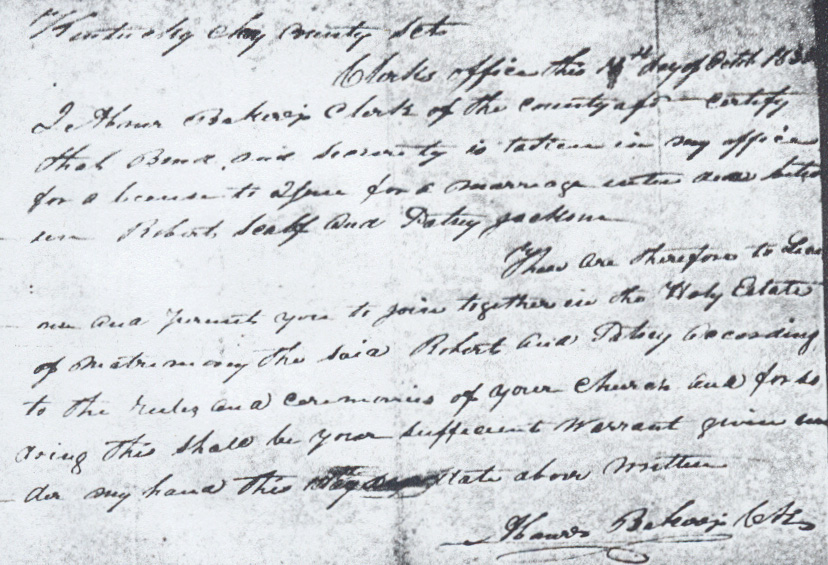 Kentucky Clay County Sct
Clerks office this day of Octb
I Abner Baker Clerk of the county afs certify
that Bond and security is taken in my office
for a license to Issue for a marriage
Robert Scalf and Patsy Jackson
These are therefore to
and permit you to join together in the Holy Estate
of matrimony the said Robert and Patsy according
to the rules and ceremonies of your Church and for so
doing this shall be your sufficient warrant given un
der my hand this date above written
Abner Baker